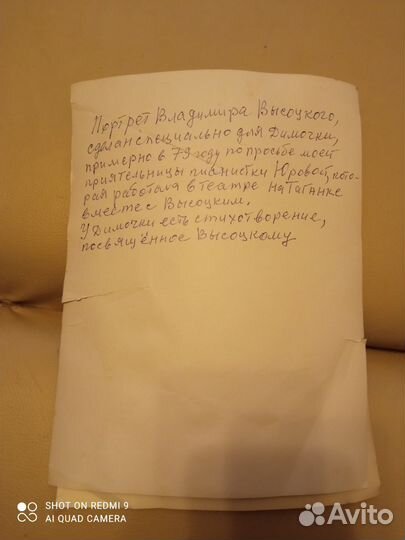 Портрет Владимира Высоцкого,
сделан специально для Димочки,
примерно в 79 году по просьбе моей
приятельницы пианистки Юровой, кото-
рая работала в театре на Таганке
вместе с Высоцким.
У Димочки есть стихотворение,
посвящённое Высоцкому
SHOT ON REDMI 9
AI QUAD CAMERA
Avito